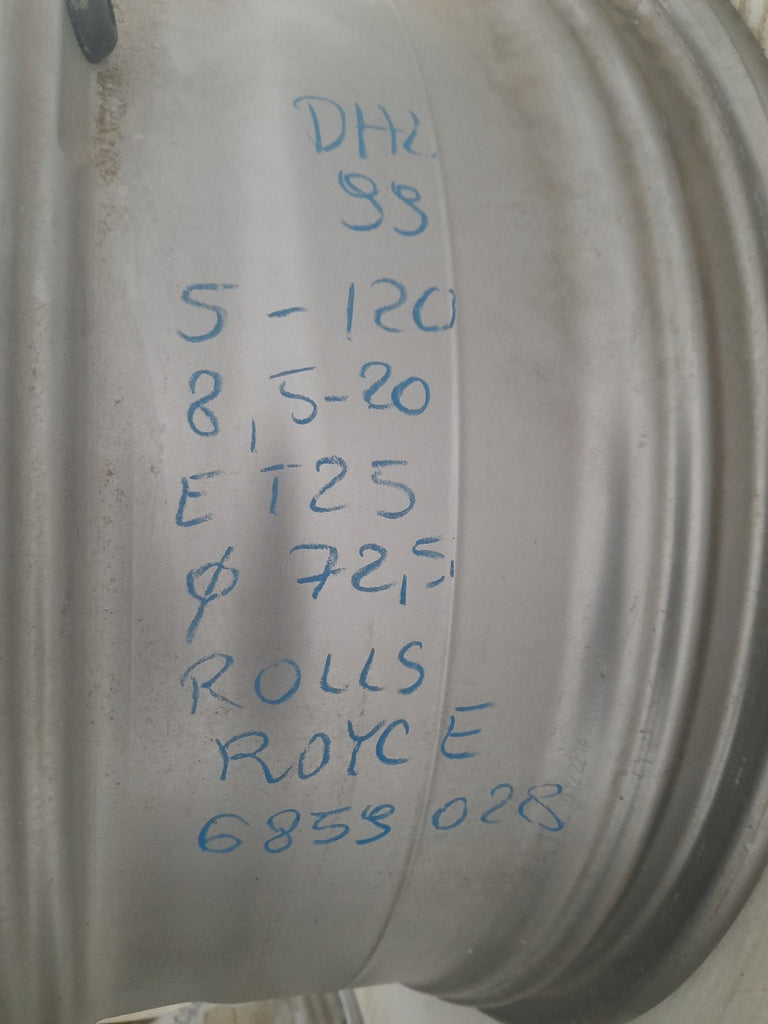 DHL
99
5 - 120
8,5-20
ET25
Ø 72,5
ROLLS
ROYCE
6859 028